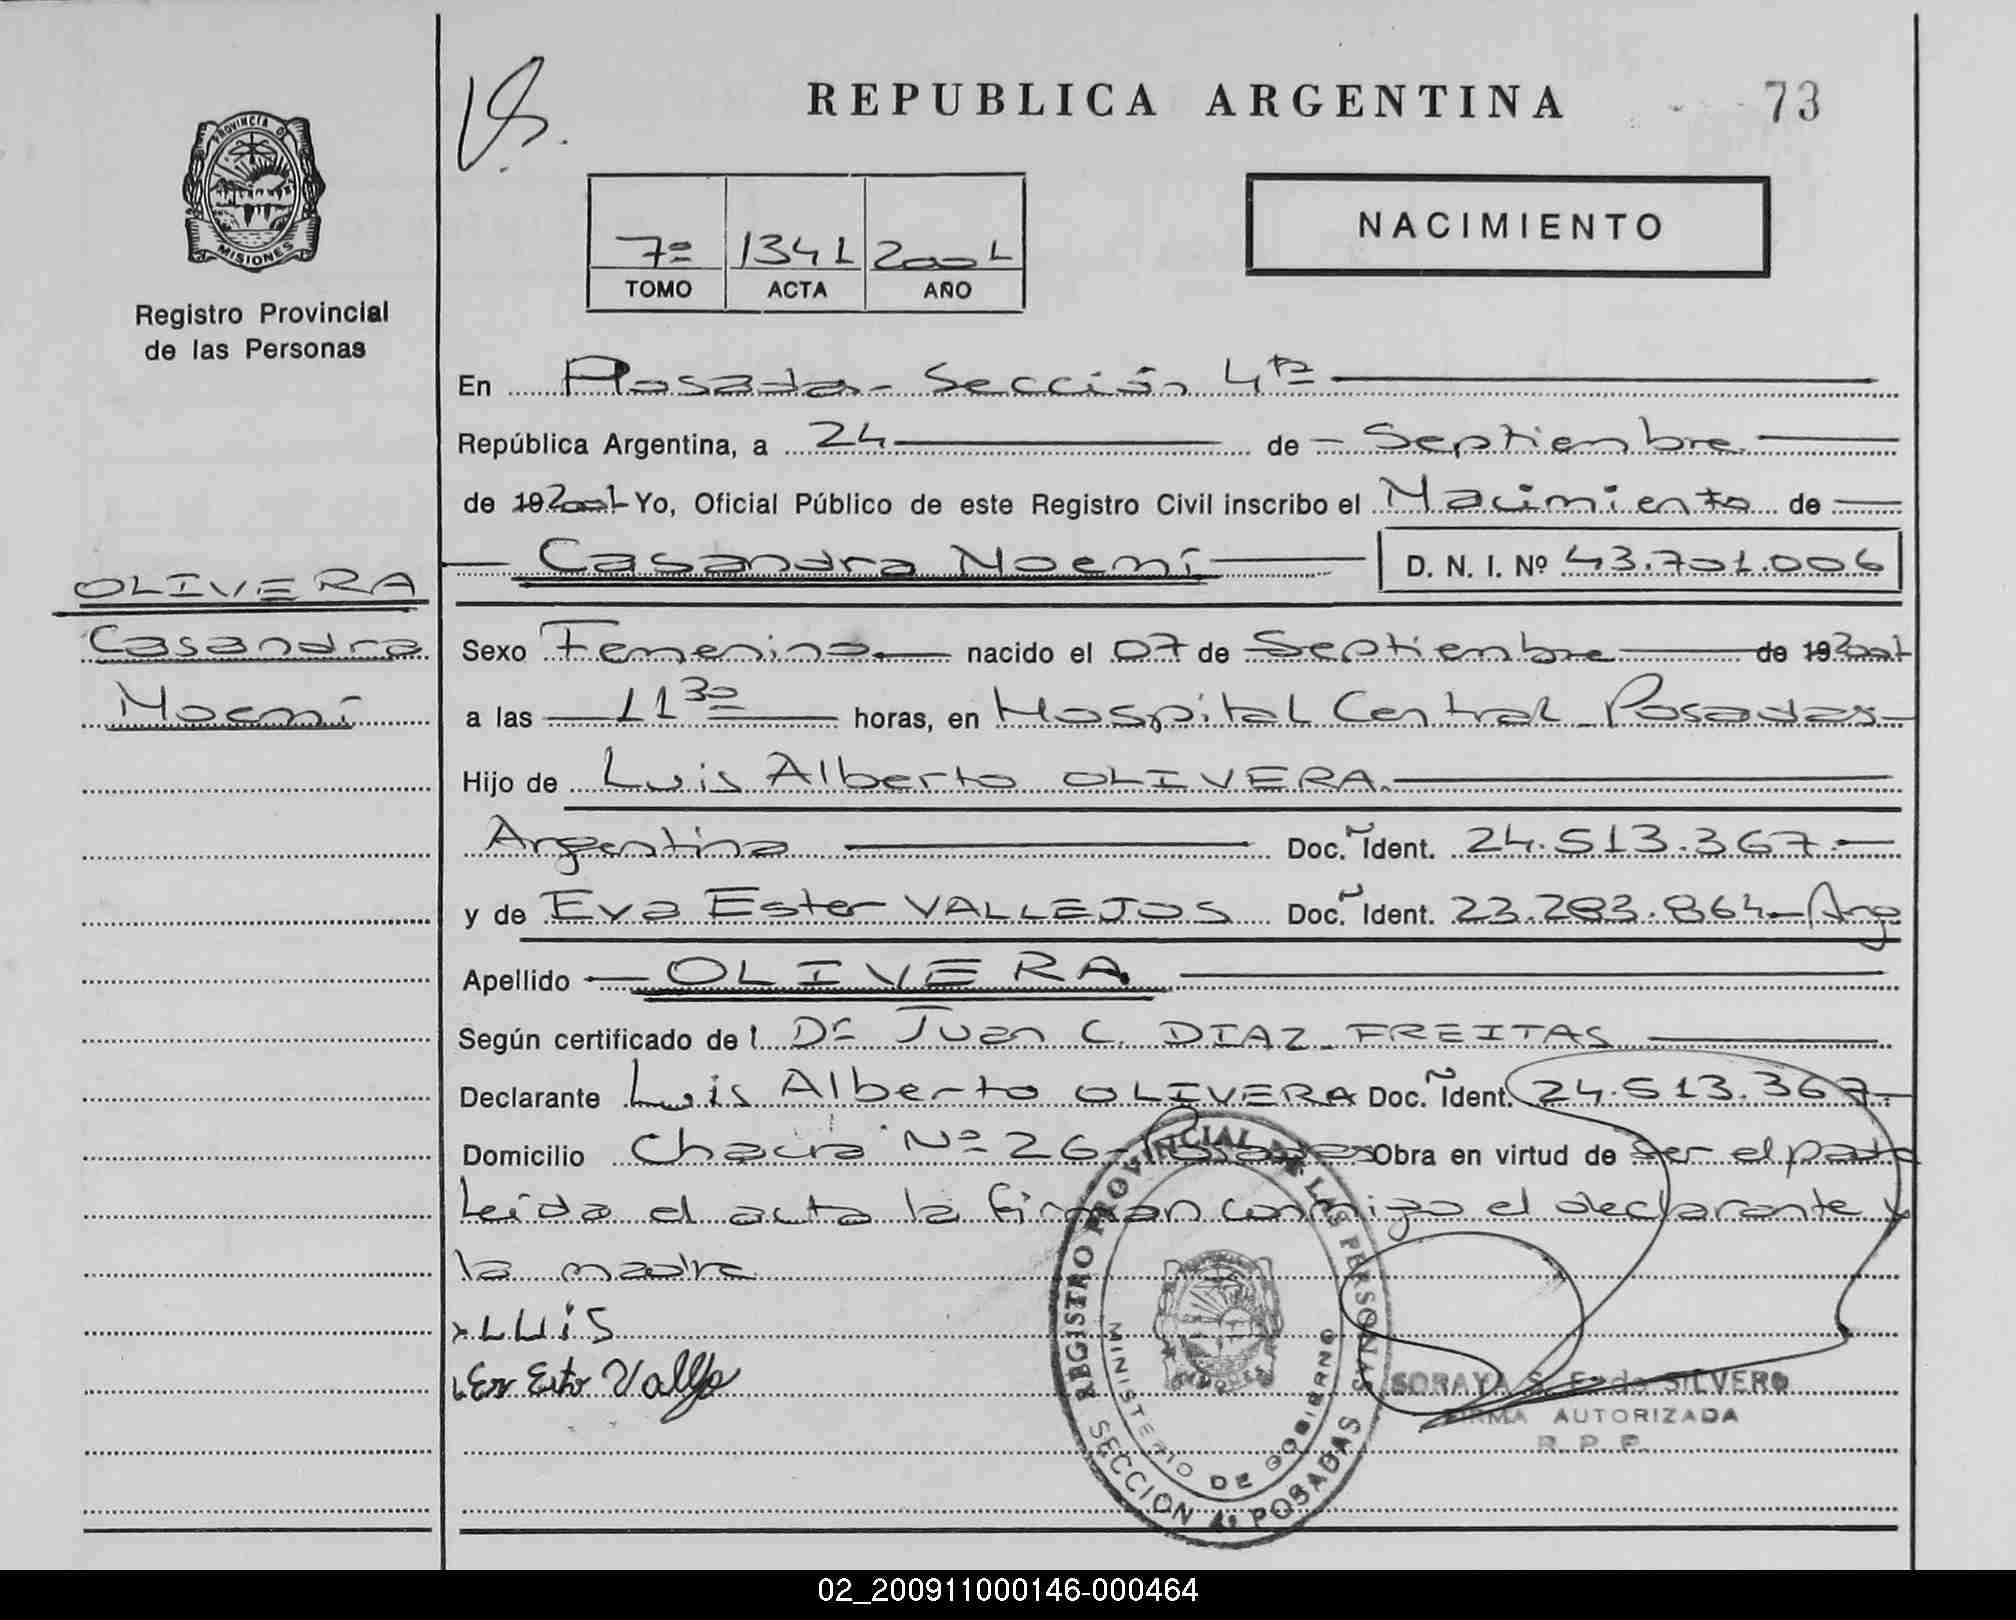 REPUBLICA ARGENTINA
73
PROVINCIA D
MISIONES
Registro Provincial
de las Personas
7º 1341 2001
TOMO ACTA AÑO
NACIMIENTO
En Posadas - Sección 4ta
República Argentina, a 24 de Septiembre
de 19 2001 Yo, Oficial Público de este Registro Civil inscribo el Nacimiento de
Casandra Noemí D. N. I. Nº 43.701.006
OLIVERA
Casandra
Noemí
Sexo Femenino nacido el 07 de Septiembre de 19 2001
a las 11 30 horas, en Hospital Central Posadas
Hijo de Luis Alberto OLIVERA.
Argentina Doc. Ident. 24.513.367.-
y de Eva Ester VALLEJOS Doc. Ident. 23.283.864 - Arg
Apellido OLIVERA
Según certificado de l Dr Juan C. DIAZ FREITAS
Declarante Luis Alberto OLIVERA Doc. Ident. 24.513.367.-
Domicilio Chacra Nº 26 - Posadas Obra en virtud de ser el padre
Leída el acta la firman conmigo el declarante y
la madre
LUIS
Ester Vallejo
REGISTRO PROVINCIAL DE LAS PERSONAS
MINISTERIO DE GOBIERNO
SECCION 4º POSADAS
SORAYA S. SILVERO
FIRMA AUTORIZADA
R. P. P.
02_200911000146-000464